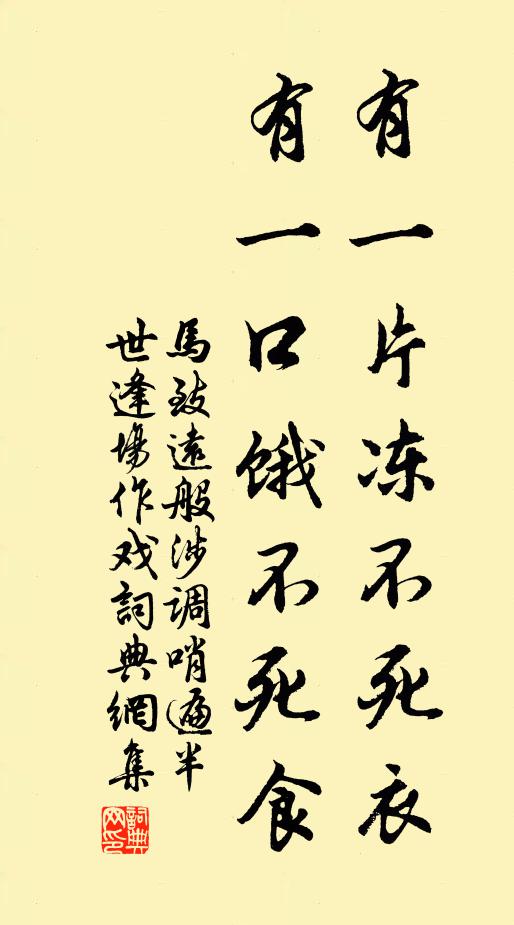 有一片冻不死衣
有一口饿不死食
馬致遠般涉调哨遍半
世逢場作戏詞典網集
詞典
网印